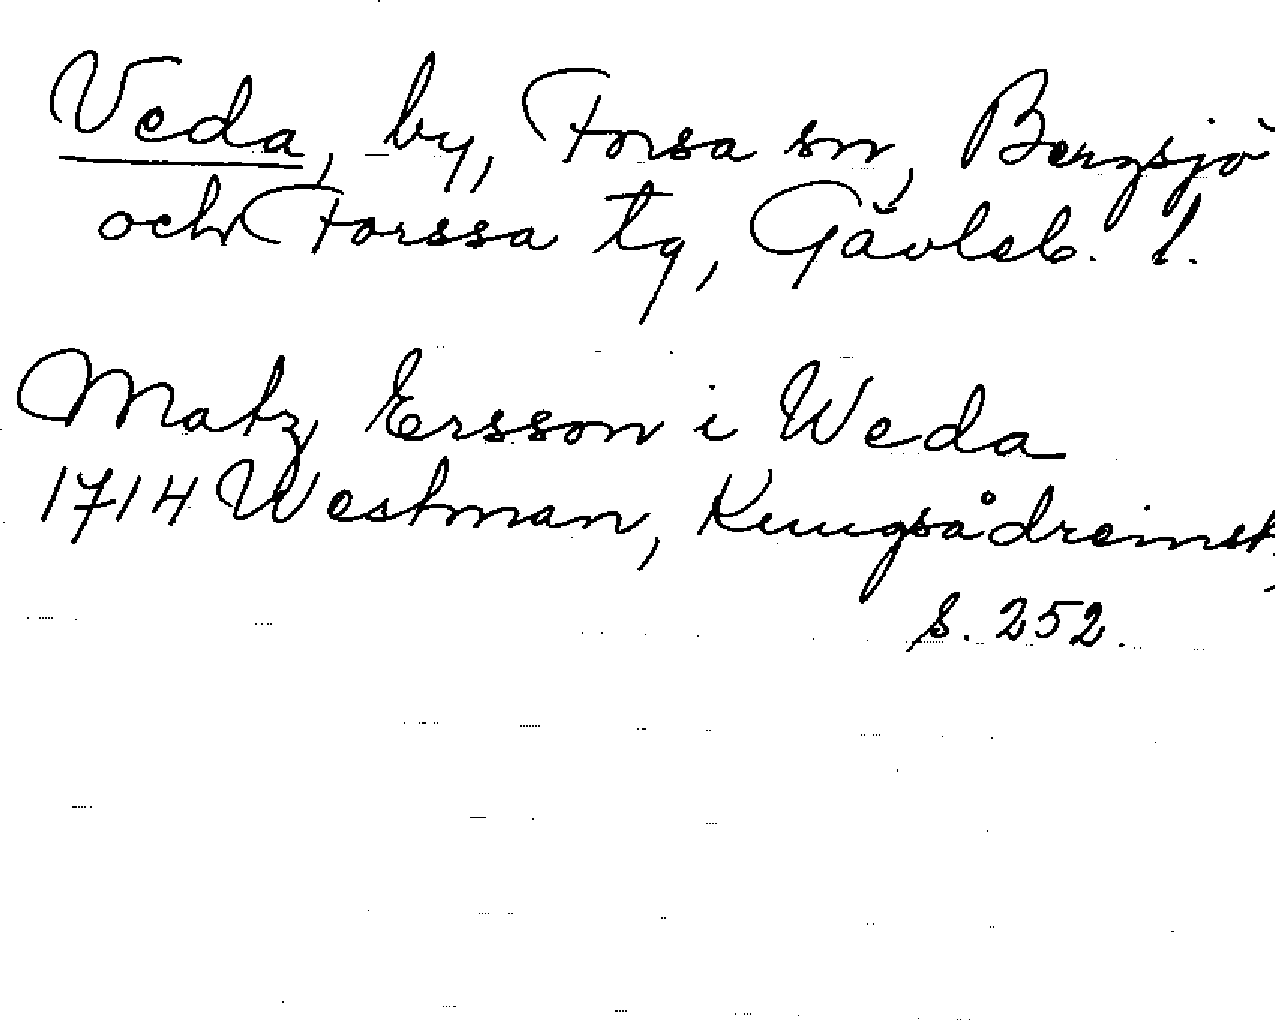 Veda, by, Forsa sn, Bergsjö
och Forssa tg, Gävleb. l.
Matz Ersson i Weda
1714 Westman, Kungsådreinst,
s. 252.